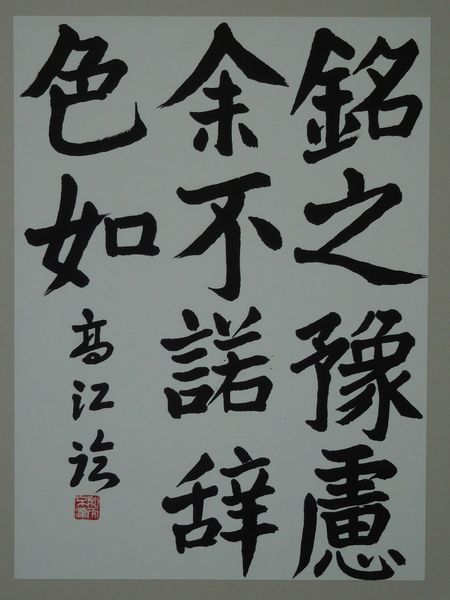 銘之豫慮
余不諾辞
色如
高江